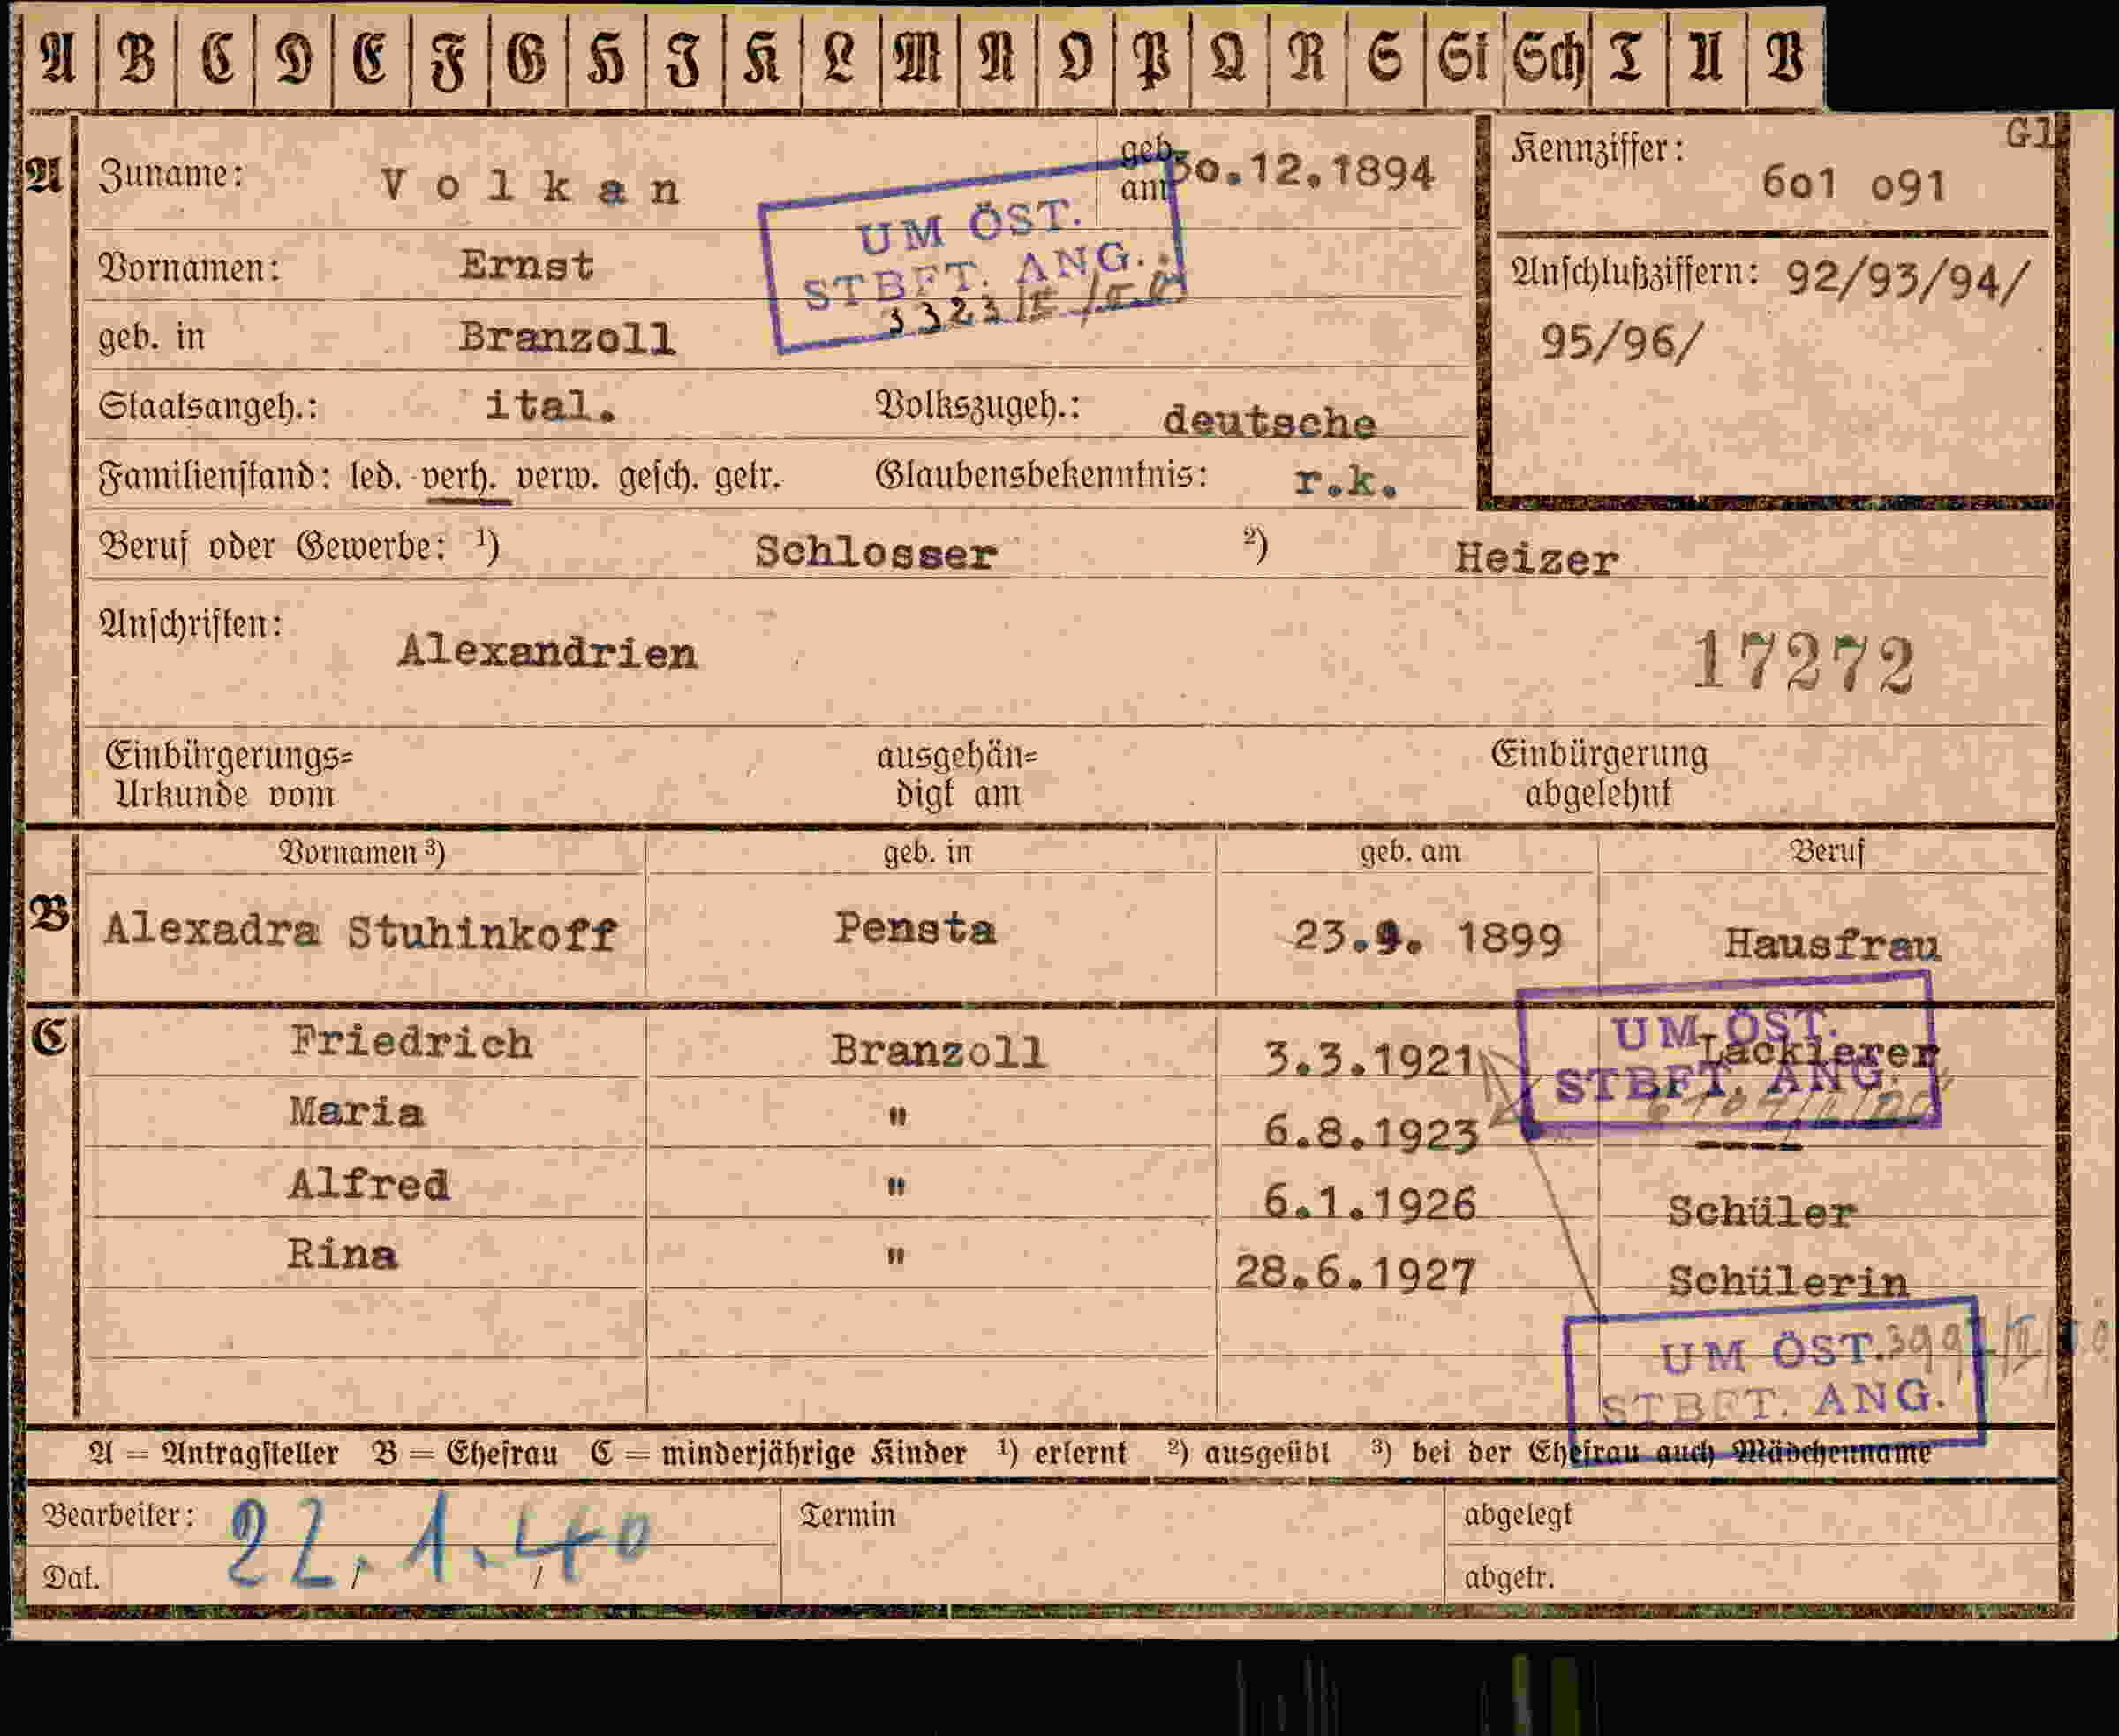 A B C D E F G H I K L M N O P Q R S St Sch T U V
A Zuname: Volkan geb. am 30.12.1894
Kennziffer: 601 091 Gl
UM ÖST.
STBFT. ANG.
3323/II
Vornamen: Ernst
Anschlußziffern: 92/93/94/
95/96/
geb. in Branzoll
Staatsangeh.: ital. Volkszugeh.: deutsche
Familienstand: led. verh. verw. gesch. getr. Glaubensbekenntnis: r.k.
Beruf oder Gewerbe: ¹) Schlosser ²) Heizer
Anschriften: Alexandrien 17272
Einbürgerungs= ausgehän= Einbürgerung
Urkunde vom digt am abgelehnt
Vornamen ³) geb. in geb. am Beruf
B Alexadra Stuhinkoff Pensta 23.9. 1899 Hausfrau
C Friedrich Branzoll 3.3.1921 Lackierer
UM ÖST.
STBFT. ANG.
Maria " 6.8.1923 ----
Alfred " 6.1.1926 Schüler
Rina " 28.6.1927 Schülerin
UM ÖST.
STBFT. ANG.
A = Antragsteller B = Ehefrau C = minderjährige Kinder ¹) erlernt ²) ausgeübt ³) bei der Ehefrau auch Mädchenname
Bearbeiter: Termin abgelegt
22.1.40
Dat. abgetr.